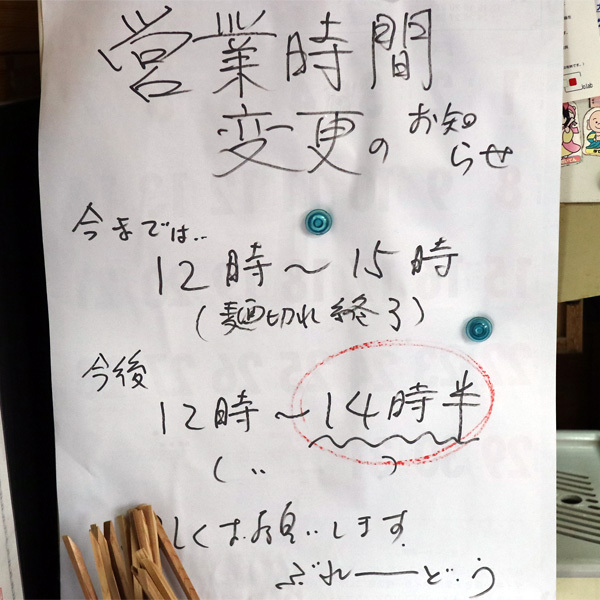 営業時間
変更のお知らせ
今までは..
12時〜15時
(麺切れ終了)
今後
12時〜14時半
(〃)
しくお願いします
ぶれーどう